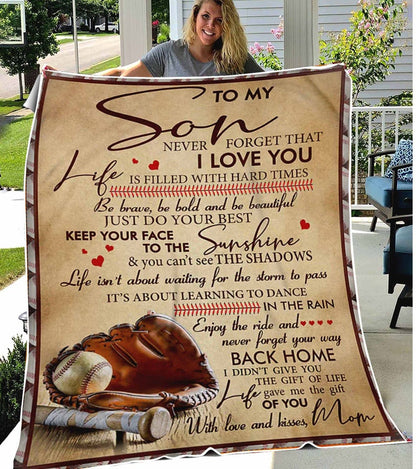 TO MY
Son
NEVER FORGET THAT
I LOVE YOU
Life IS FILLED WITH HARD TIMES
Be brave, be bold and be beautiful
JUST DO YOUR BEST
KEEP YOUR FACE
TO THE Sunshine
& you can't see THE SHADOWS
Life isn't about waiting for the storm to pass
IT'S ABOUT LEARNING TO DANCE
IN THE RAIN
Enjoy the ride and
never forget your way
BACK HOME
I DIDN'T GIVE YOU
THE GIFT OF LIFE
Life gave me the gift
OF YOU
With love and kisses, Mom